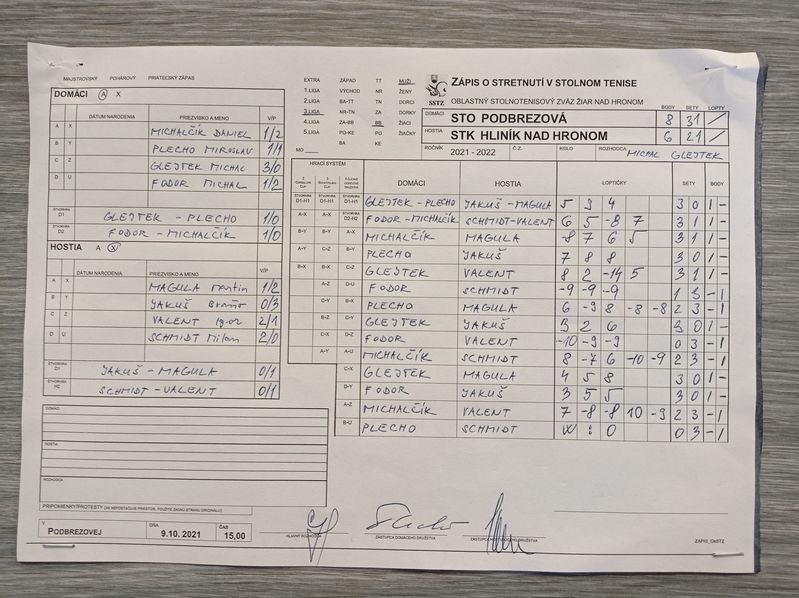 MAJSTROVSKÝ POHÁROVÝ PRIATEĽSKÝ ZÁPAS
DOMÁCI A X
DÁTUM NARODENIA PRIEZVISKO A MENO V/P
A X MICHALČÍK DANIEL 1/2
B Y PLECHO MIROSLAV 1/1
C Z GLEJTEK MICHAL 3/0
D U FODOR MICHAL 1/2
ŠTVORHRA D1 GLEJTEK - PLECHO 1/0
ŠTVORHRA D2 FODOR - MICHALČÍK 1/0
HOSTIA A X
DÁTUM NARODENIA PRIEZVISKO A MENO V/P
A X MAGULA Martin 1/2
B Y JAKUŠ Braňo 0/3
C Z VALENT Igor 2/1
D U SCHMIDT Milan 2/0
ŠTVORHRA D1 JAKUŠ - MAGULA 0/1
ŠTVORHRA H2 SCHMIDT - VALENT 0/1
DOMÁCI:
HOSTIA:
ROZHODCA:
PRIPOMIENKY/PROTESTY (AK NEPOSTAČUJE PRIESTOR, POUŽITE ZADNÚ STRANU ORIGINÁLU)
V PODBREZOVEJ DŇA 9.10. 2021 ČAS 15,00
EXTRA ZÁPAD TT MUŽI
1.LIGA VÝCHOD NR ŽENY
2.LIGA BA-TT TN DORCI
3.LIGA NR-TN ZA DORKY
4.LIGA ZA-BB BB ŽIACI
5.LIGA PO-KE PO ŽIAČKY
BA KE
MO
SSTZ
ZÁPIS O STRETNUTÍ V STOLNOM TENISE
OBLASTNÝ STOLNOTENISOVÝ ZVÄZ ŽIAR NAD HRONOM
BODY SETY LOPTY
DOMÁCI STO PODBREZOVÁ 8 31
HOSTIA STK HLINÍK NAD HRONOM 6 21
ROČNÍK 2021 - 2022 Č.Z. KOLO ROZHODCA MICHAL GLEJTEK
HRACÍ SYSTÉM
DOMÁCI HOSTIA LOPTIČKY SETY BODY
ŠTVORHRA D1-H1 ŠTVORHRA D1-H1 ŠTVORHRA D1-H1 GLEJTEK - PLECHO JAKUŠ - MAGULA 5 9 4 3 0 1 -
A-X A-X ŠTVORHRA D2-H2 FODOR - MICHALČÍK SCHMIDT - VALENT 6 5 -8 7 3 1 1 -
B-Y B-Y A-X MICHALČÍK MAGULA -8 7 6 5 3 1 1 -
A-Y C-Z B-Y PLECHO JAKUŠ 7 8 8 3 0 1 -
B-X B-X C-Z GLEJTEK VALENT 8 2 -14 5 3 1 1 -
A-Z D-U FODOR SCHMIDT -9 -9 -9 1 3 - 1
C-Y B-X PLECHO MAGULA 6 -9 8 -8 -8 2 3 - 1
B-Z C-Y GLEJTEK JAKUŠ 3 2 6 3 0 1 -
C-X D-Z FODOR VALENT -10 -9 -9 0 3 - 1
A-Y A-U MICHALČÍK SCHMIDT 8 -7 6 -10 -9 2 3 - 1
C-X GLEJTEK MAGULA 4 5 8 3 0 1 -
D-Y FODOR JAKUŠ 3 5 5 3 0 1 -
A-Z MICHALČÍK VALENT 7 -8 -8 10 -9 2 3 - 1
B-U PLECHO SCHMIDT W : O 0 3 - 1
HLAVNÝ ROZHODCA ZÁSTUPCA DOMÁCEHO DRUŽSTVA ZÁSTUPCA HOSŤUJÚCEHO DRUŽSTVA ZÁPIS_OkSTZ